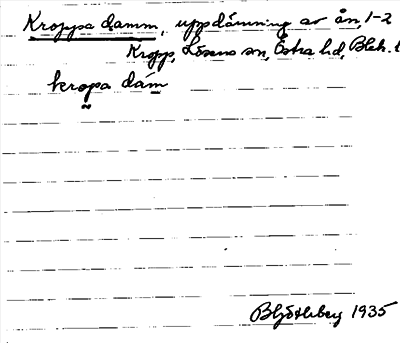 Kroppsa damm, uppdämning av ån, 1-2
Kropp, Lösens sn, Östra hd, Blek. l
kropa dám
Bhj Göthberg 1935